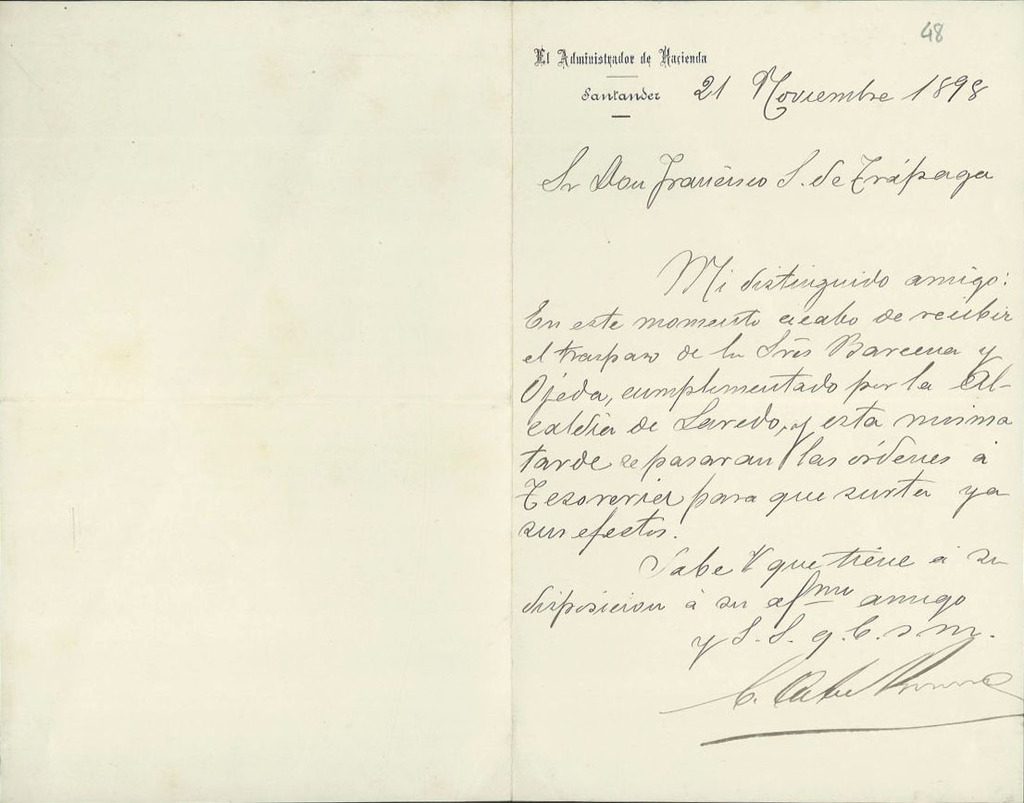 48
El Administrador de Hacienda
Santander 21 Noviembre 1898
Sr Don Francisco S. de Trápaga
Mi distinguido amigo:
En este momento acabo de recibir
el traspaso de la Srês Barcena y
Ojeda, cumplimentado por la Al-
caldia de Laredo, y esta misma
tarde se pasaran las órdenes á
Tesoreria para que surta ya
sus efectos.
Sabe V que tiene á su
disposicion á su afmo amigo
y S. S. q. b. s m.